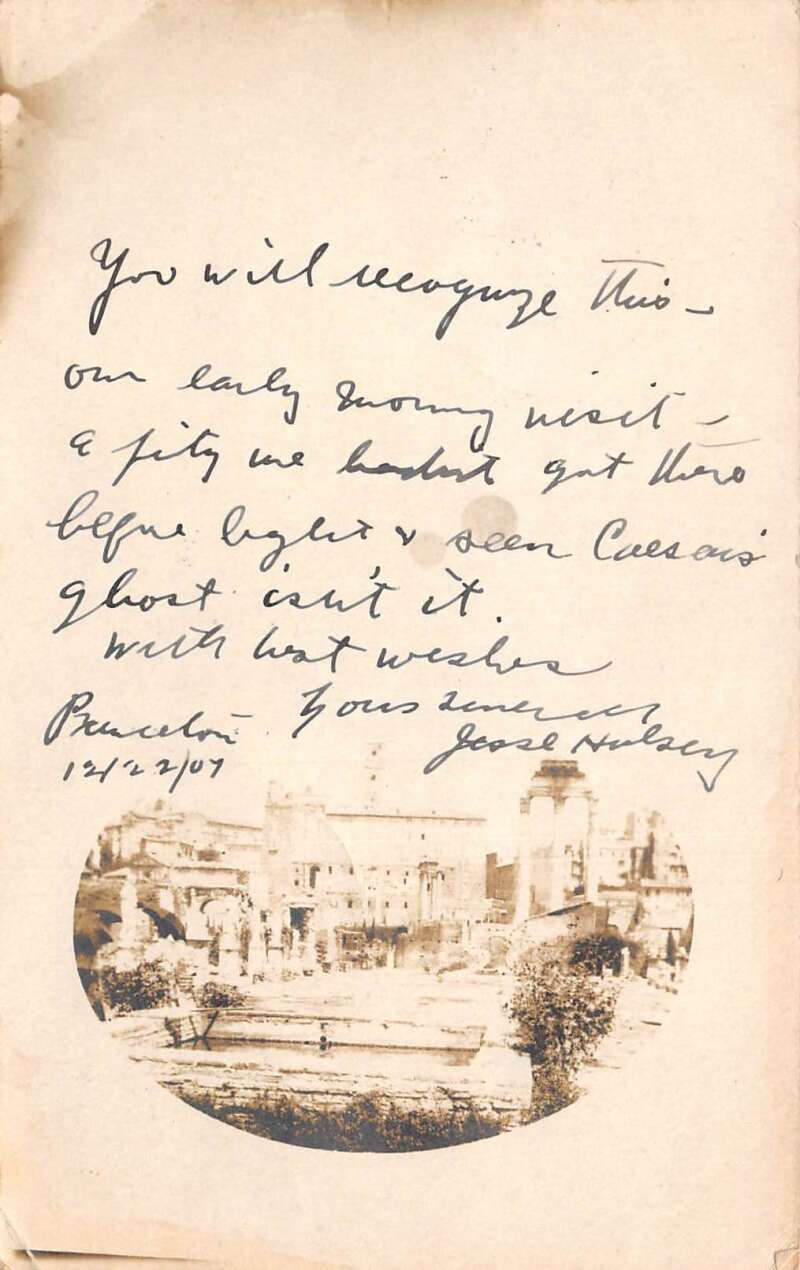 You will recognize this –
our early morning visit –
a pity we hadn't got there
before light & seen Caesar's
ghost isn't it.
With best wishes
Yours sincerely
Princeton Jesse Hulsey
12/22/07